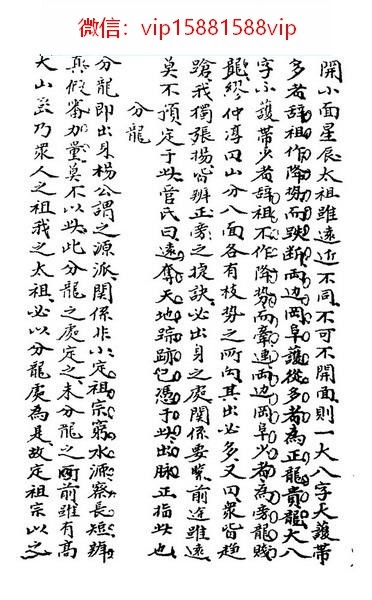 微信：vip15881588vip
開小面星辰太祖雖遠近不同不可不開面則一大八字大護帶
多者辞祖作降勢而跌斷両边岡阜護從多者為正龍貴龍大八
字小護帶少者辞祖不作降勢而牽連両边岡阜少者為旁龍賤
龍繆仲淳曰山分八面各有枝勢之所向其出必多又曰眾皆趋
蹌我獨張揚皆辨正旁之捷訣必出身之處関係要緊前途雖遠
莫不預定于此管氏曰遠奪天地踪跡已憑于此出脉正指此也
分龍
分龍即出身楊公謂之源派関係非小定祖宗窮水源察長短辨
真假審加量莫不以此此分龍之處定之未分龍之所前雖有高
大山並乃眾人之祖我之太祖必以分龍處為是故定祖宗以之